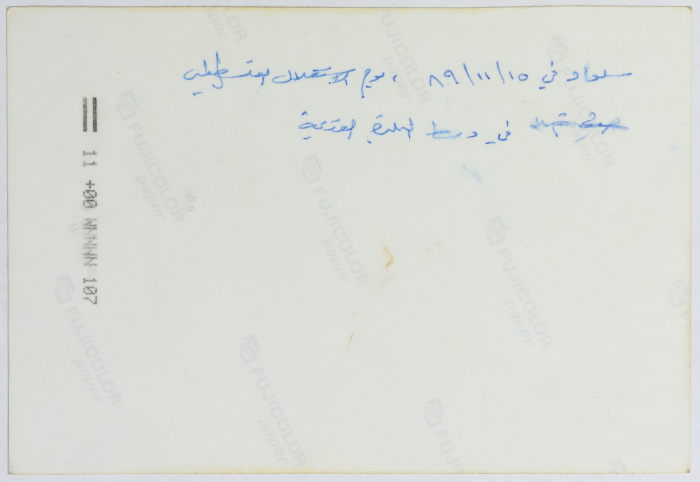 سلواد في ١٥/١١/٨٩ ، يوم الاستقلال الفلسطيني
في وسط البلدة القديمة
11 +00 NNNNN 107
FUJICOLOR
paper
FUJICOLOR
paper
FUJICOLOR
paper
FUJICOLOR
paper
FUJICOLOR
paper
FUJICOLOR
paper